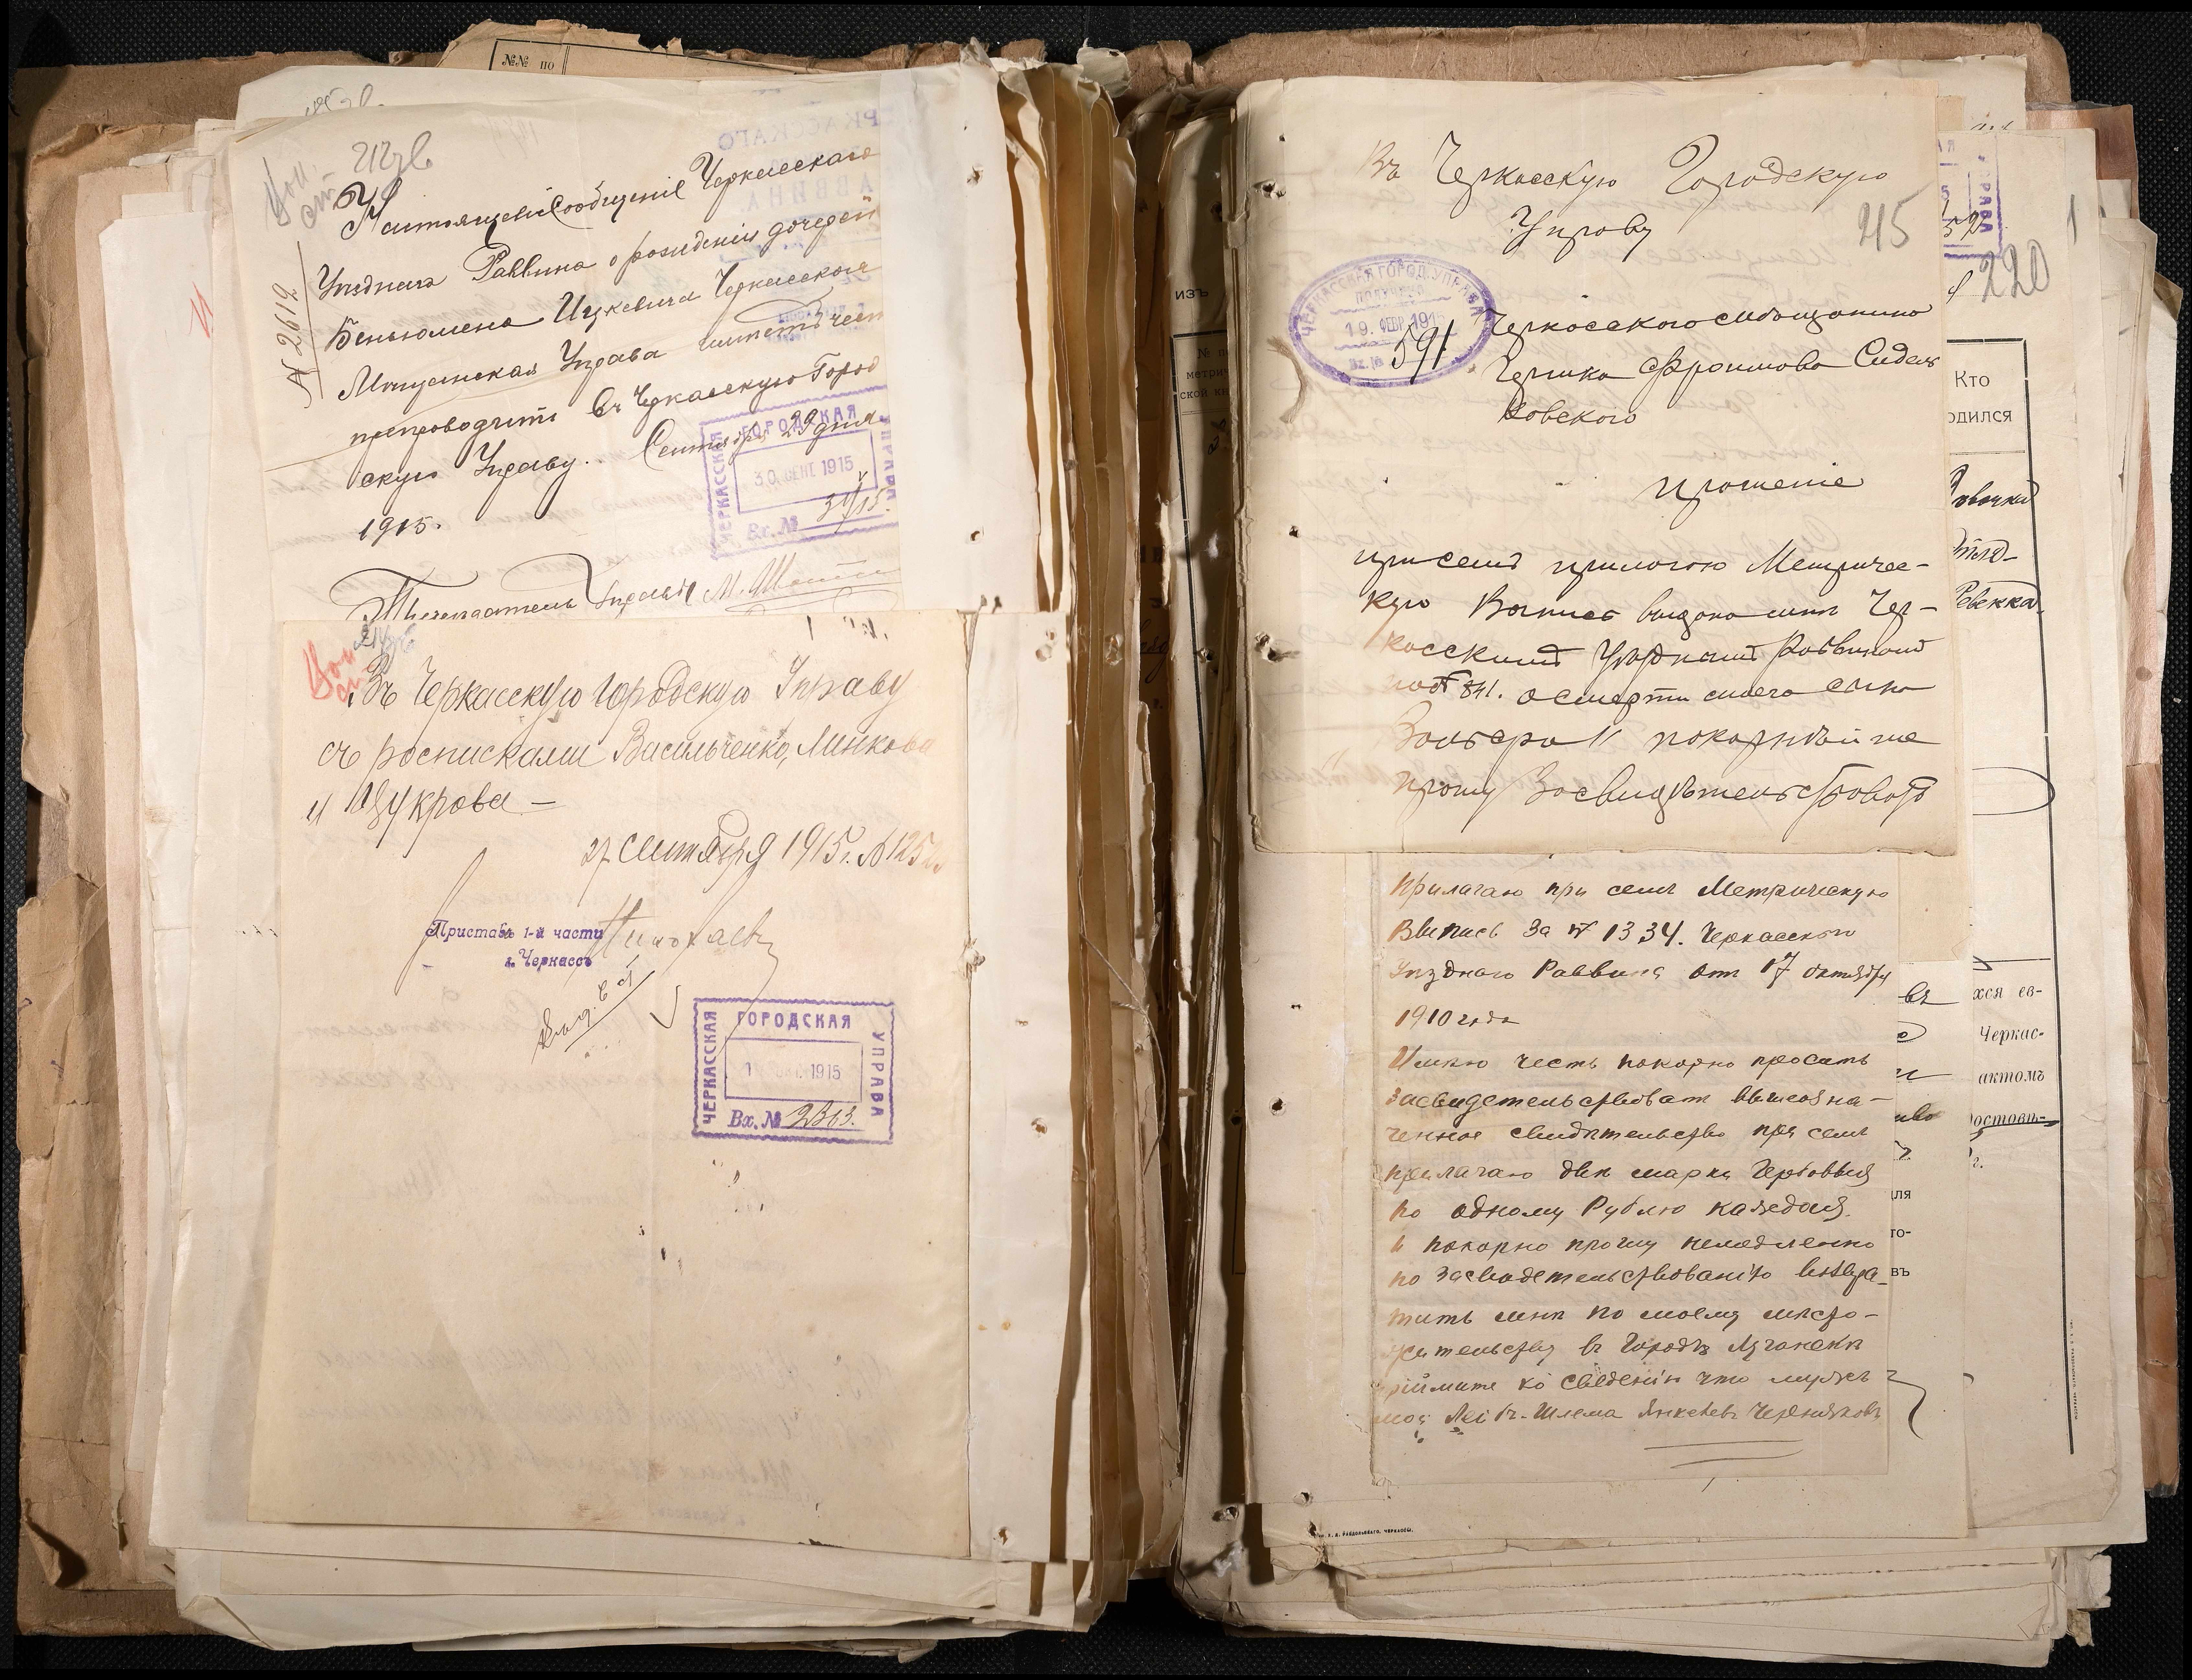 №№ по
№ 2612
Настоящее сообщение Черкасскаго
Уезднаго Раввина о рождении дочерей
Беньюмена Ицкевича Черкасская
Мещанская Управа имеетъ честь
препроводить въ Черкасскую Город
скую Управу. Сентября 29 дня
1915.
ЧЕРКАССКАЯ ГОРОДСКАЯ УПРАВА
30 СЕНТ 1915
Вх. №
Председатель Управы М.
Въ Черкасскую Городскую Управу
съ росписками Васильченко, Линкова
и Цукрова —
27 Сентября 1915 г. №
Приставъ 1-й части
г. Черкассъ
ЧЕРКАССКАЯ ГОРОДСКАЯ УПРАВА
1915
Вх. № 2363.
Въ Черкасскую Городскую
Управу
215
ЧЕРКАССКАЯ ГОРОД. УПРАВА
ПОЛУЧЕНО
19 ФЕВР 191
Вх. № 591
Черкасского мещанина
Гершка Фроимова Сидель
ковского
прошение
при семъ прилогою Метричес-
кую Выпись выдана мне Чер-
касскимъ Уезднымъ Раввиномъ
под № 841. о смерти моего сына
покорнейше
прошу Засвидетельствовать
Прилагаю при семъ Метрическую
Выпись За № 1334. Черкасского
Уезднаго Раввина отъ 17 октября
1910 года
Имею честь покорно просить
засвидетельствовать вышеозна-
ченное свидетельство при семъ
прилагаю две марки Гербовыя
по одному Рублю каждая.
и покорно прошу немедленно
по засвидетельствованiю возвра-
тить мне по моему место-
жительству въ Городъ Луганскъ
прiймите ко сведенiю что мужъ
мой Лейбъ-Шлема Янкелевъ Черняковъ
220
1
Кто
одился
Ревекка
хся ев-
Черкас-
актомъ
ля
го-
въ
изъ